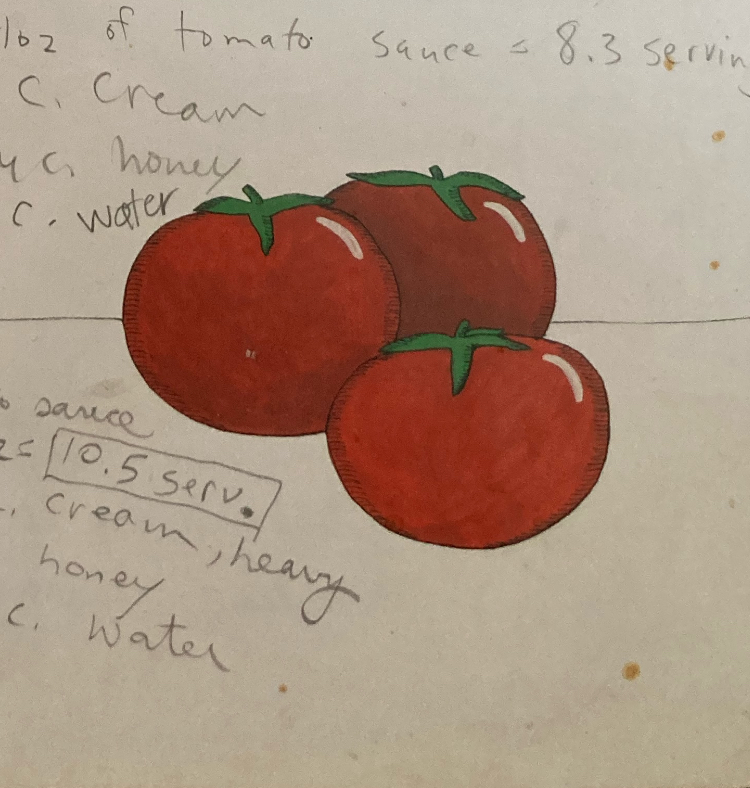 oz of tomato sauce = 8.3 servin
C. Cream
c. honey
C. water
sauce
= 10.5 serv.
cream, heavy
honey
c. water